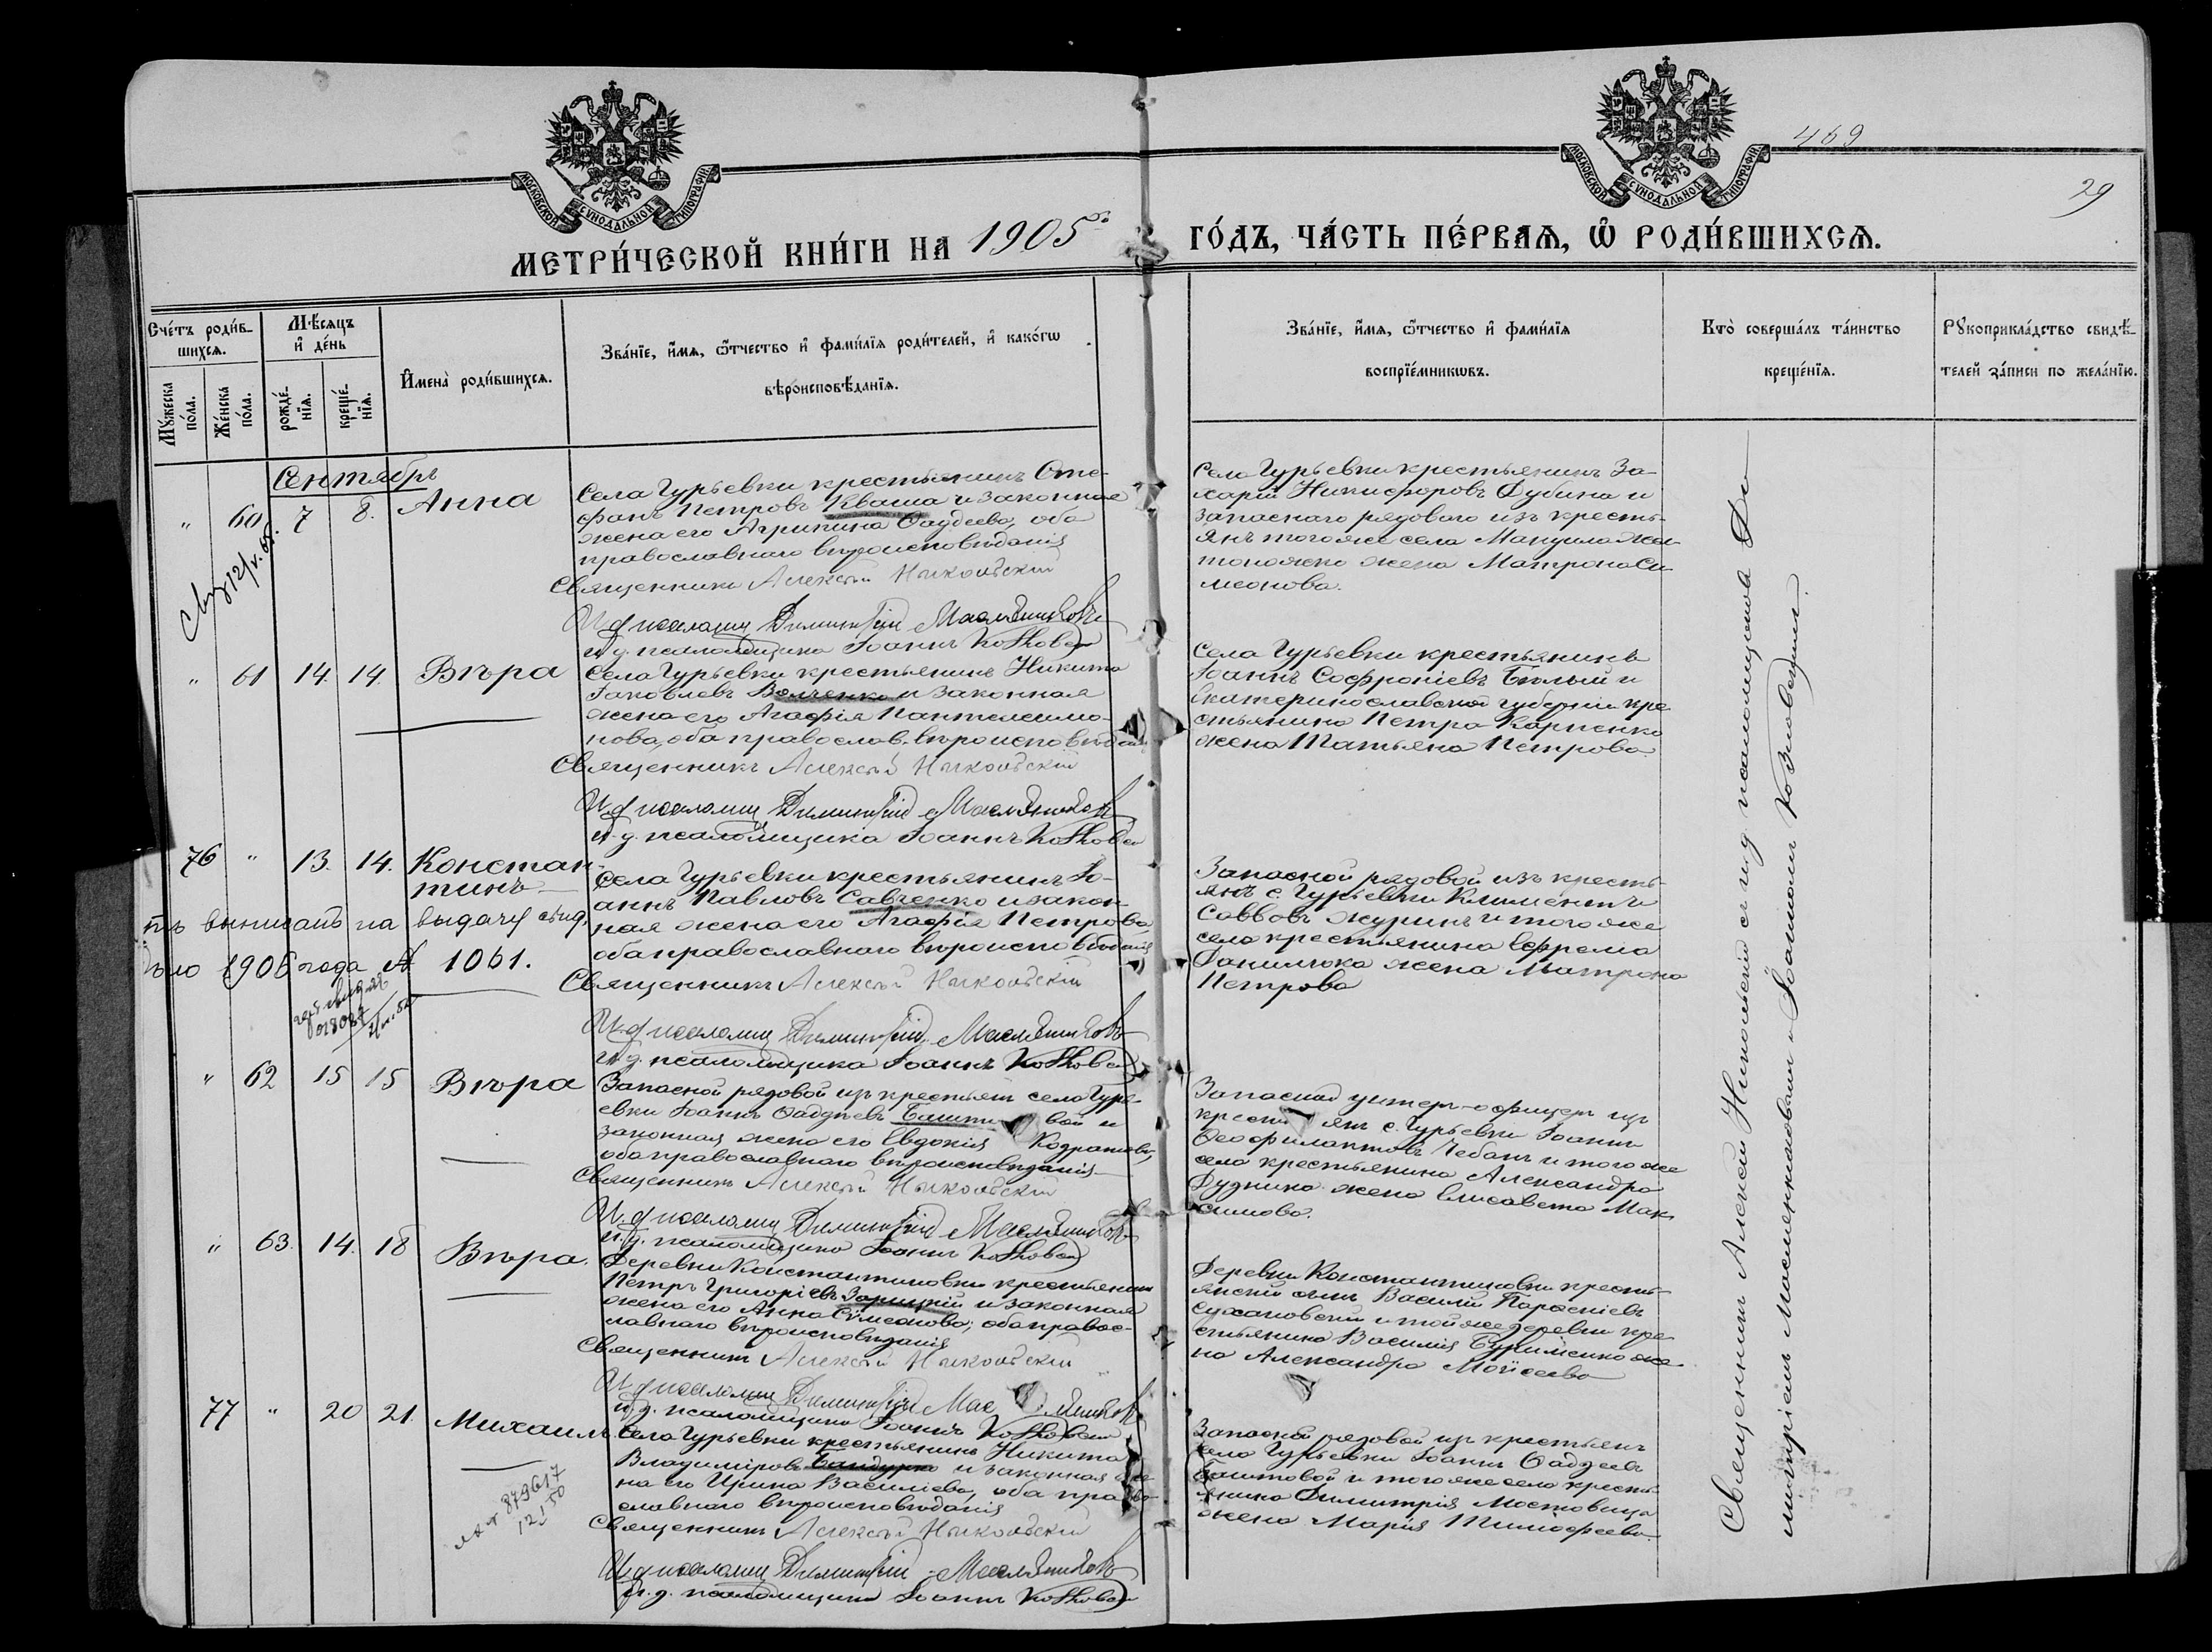 469
29
МОСКОВСКОЙ СѴНОДАЛЬНОЙ ТИПОГРАФІИ
МОСКОВСКОЙ СѴНОДАЛЬНОЙ ТИПОГРАФІИ
МЕТРИ́ЧЕСКОЙ КНИ́ГИ НА 1905й ГО́ДЪ, ЧА́СТЬ ПЕ́РВАЯ, Ѡ҆ РОДИ́ВШИХСЯ.
Сче́тъ роди́в-
шихся.
Мѣ́сяцъ
и҆ де́нь
Му́жеска по́ла.
Же́нска по́ла.
рожде́-
нїя.
креще́-
нїя.
И҆мена̀ роди́вшихся.
Зва́нїе, и҆́мя, ѻ҆́тчество и҆ фами́лїя роди́телей, и҆ како́гѡ
вѣроисповѣ́данїя.
Зва́нїе, и҆́мя, ѻ҆́тчество и҆ фами́лїя
воспрїе́мникѡвъ.
Кто̀ соверша́лъ та́инство
креще́нїя.
Рꙋкоприкла́дство свидѣ́-
телей за́писи по жела́нїю.
Сентябрь
" 60 7 8. Анна
Села Гурьевки крестьянинъ Сте-
фанъ Петровъ Кваша и законная
жена его Агрипина Фаддеева, оба
православнаго вѣроисповѣданія
Священникъ Алексѣй Никольскій
И д псаломщ Димитрій Масленниковъ
и д. псаломщика Іоаннъ
Села Гурьевки крестьянинъ За-
харій Никифоровъ Дубина и
запаснаго рядового изъ кресть-
янъ того же села
жена Матрона Си-
меонова.
" 61 14. 14. Вѣра
Села Гурьевки крестьянинъ Никита
Іаковлевъ Волченко и законная
жена его Агафія Пантелеимо-
нова, оба православ. вѣроисповѣдан
Священникъ Алексѣй Никольскій
И д псаломщ Димитрій Масленниковъ
и. д. псаломщика Іоаннъ
Села Гурьевки крестьянинъ
Іоаннъ Софроніевъ Бѣлый и
Екатеринославской губерніи кре
стьянина Петра Карпенко
жена Татьяна Петрова
76 " 13. 14. Констан-
тинъ
Села Гурьевки крестьянинъ Іо-
аннъ Павловъ Савченко и закон-
ная жена его Агафія Петрова,
оба православнаго вѣроисповѣданія
Священникъ Алексѣй Никольскій
И д псаломщ Димитрій Масленниковъ
и д. псаломщика Іоаннъ
выписанъ на выдачу свид.
года № 1061.
Запасной рядовой изъ кресть-
янъ с. Гурьевки Климентъ
Саввовъ Журинъ и того же
села крестьянина Ефрема
Данилюка жена Матрона
Петрова
" 62 15 15 Вѣра
Запасной рядовой изъ крестьян села Гурь-
евки Іоаннъ Фаддѣевъ вой и
законная жена его Евдокія Кодратова,
оба православнаго вѣроисповѣданія
Священникъ Алексѣй Никольскій
И. д псаломщ Димитрій Масленниковъ
и. д. псаломщика Іоаннъ
Запасной унтеръ-офицеръ изъ
янъ с. Гурьевки Іоаннъ
Феофилактовъ Чебанъ и того же
села крестьянина Александра
Дудника жена Елисавета Мак
симова.
" 63. 14. 18 Вѣра.
Деревни Константиновки крестьянинъ
Петръ Григоріевъ Зарицкій и законная
жена его Анна Симеонова; оба правос-
лавнаго вѣроисповѣданія
Священникъ Алексѣй Никольскій
И д псаломщ Димитрій Мас енниковъ
и д. псаломщика Іоаннъ
Деревни Константиновки кресть-
янскій сынъ Василій
Сухановскій и той же деревни кре-
стьянина Василія жена
Александра Моисеева
77 " 20 21. Михаилъ
Села Гурьевки крестьянинъ Никита
Владиміровъ Бандурко и законная же
на его Ирина Василіева, оба право-
славнаго вѣроисповѣданія
Священникъ Алексѣй Никольскій
И д псаломщ Димитрій Масленниковъ
и. д. псаломщика Іоаннъ
Запасной рядовой изъ крестьянъ
села Гурьевки Іоаннъ Фаддеевъ
Баштовой и того же села кресть-
янина Димитрія Мостовица
жена Марія Тимофеева.
879617
Священникъ Алексѣй Никольскій съ и д псаломщика Ди-
митріемъ Масленниковымъ и Іоанномъ